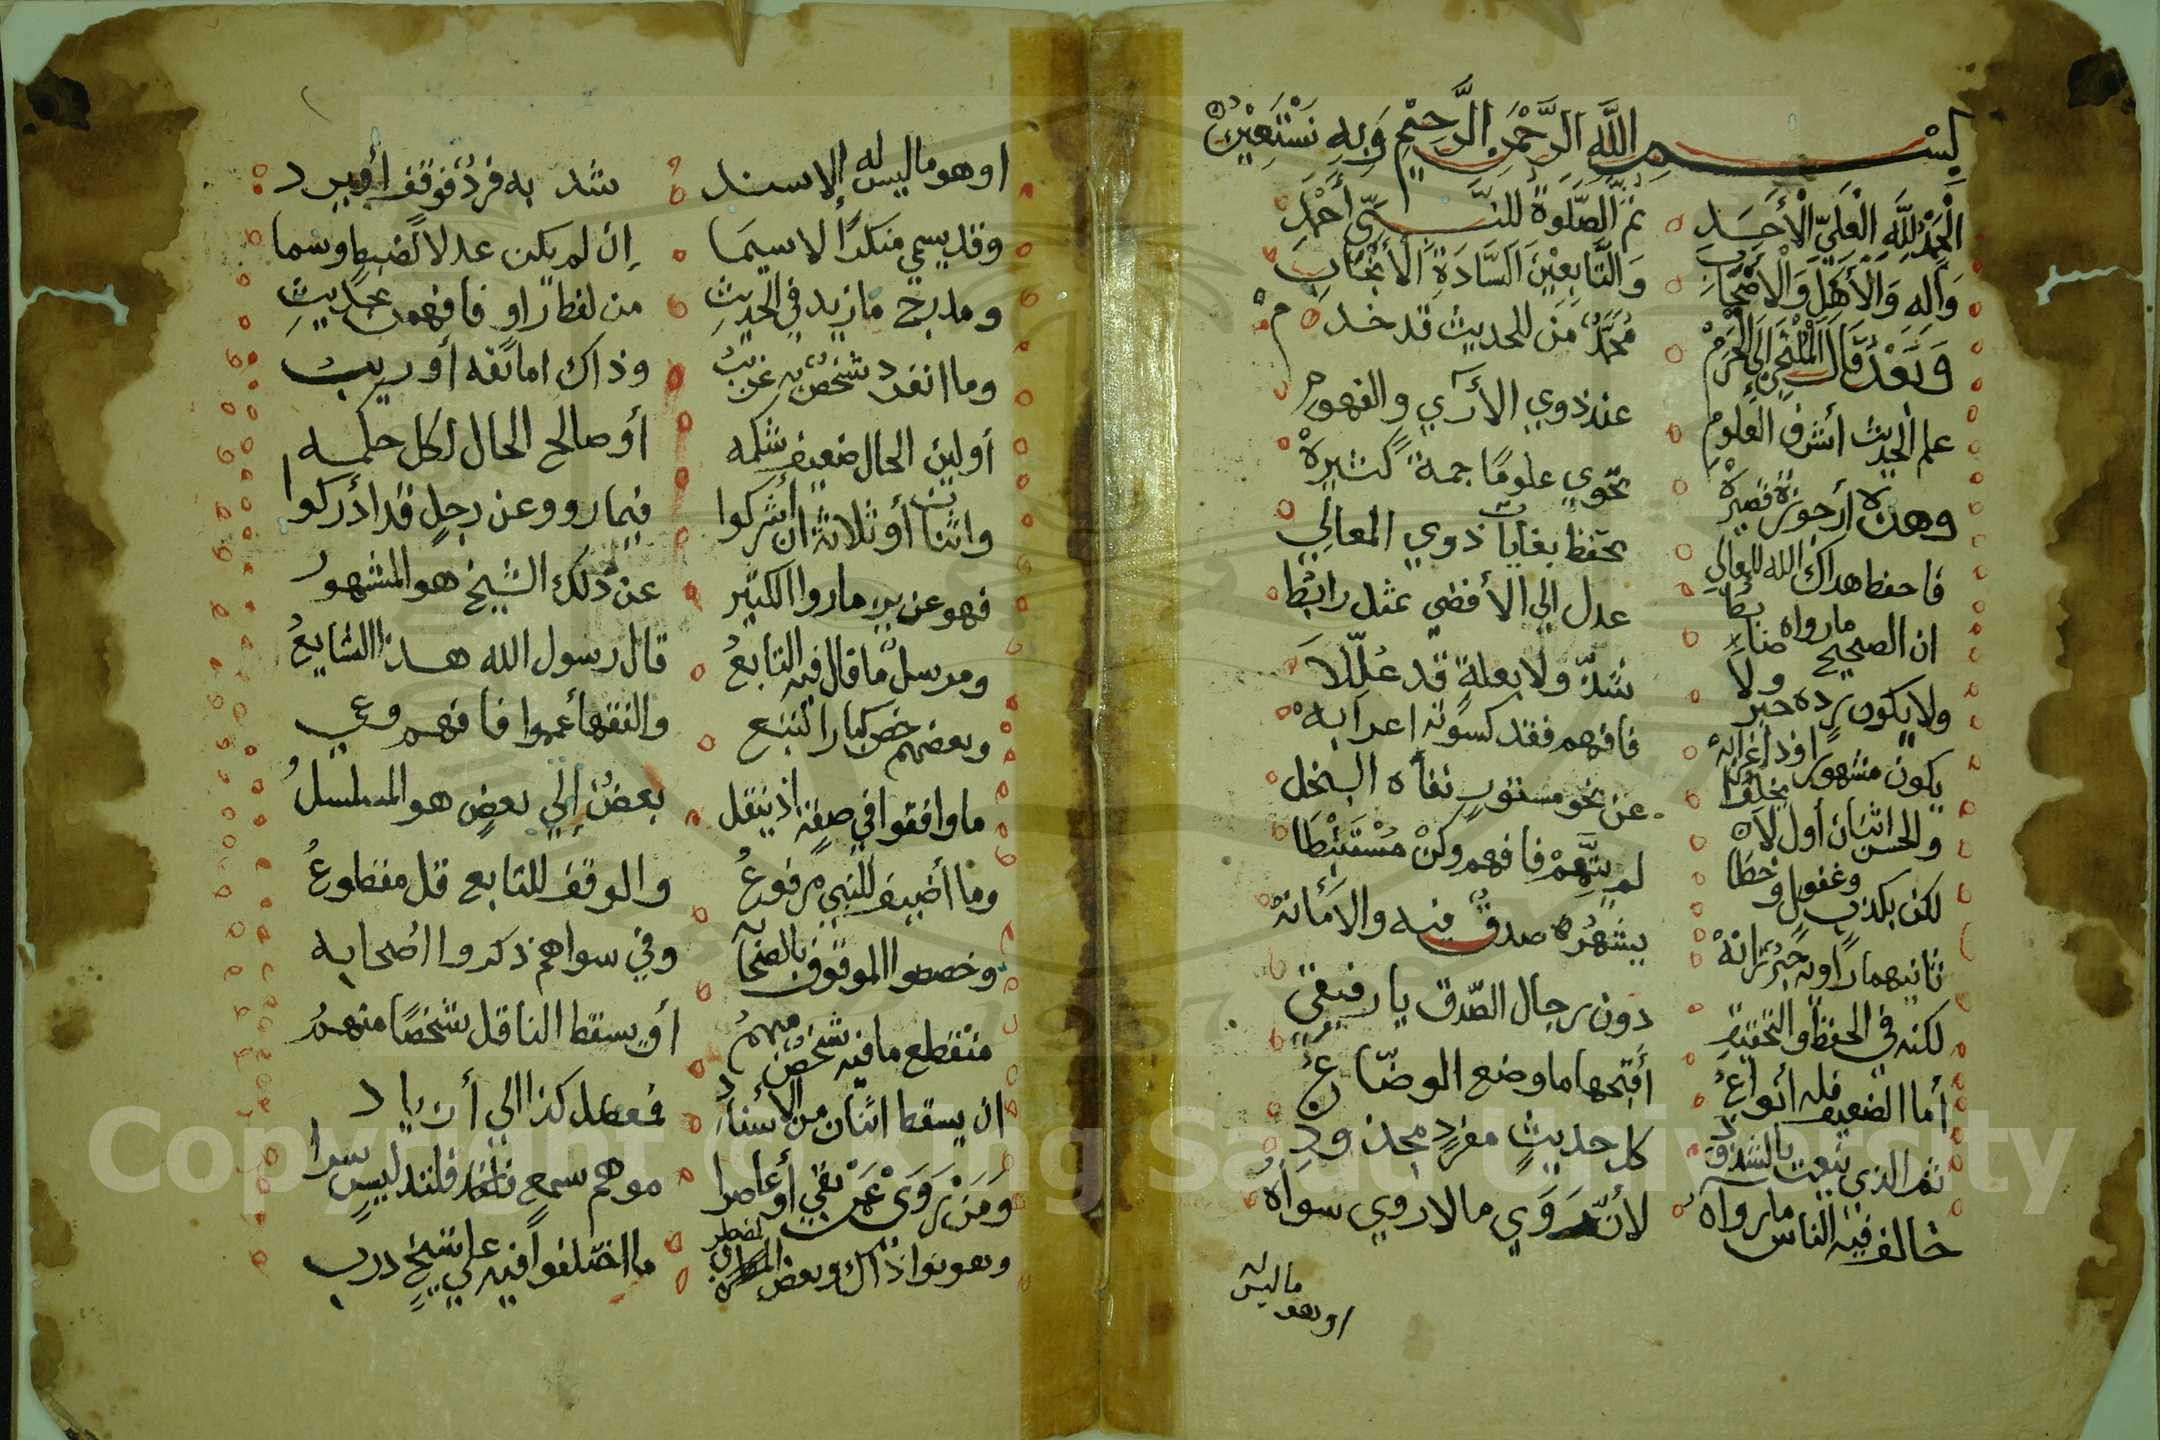 بِسْمِ اللَّهِ الرَّحْمَنِ الرَّحِيْمِ وَبِهِ نَسْتَعِيْنُ
اَلْحَمْدُ لِلَّهِ الْعَلِيِّ الْأَحَدِ ثُمَّ الصَّلَوةُ لِلنَّبِيِّ أَحْمَدِ
وَآلِهِ وَالْأَهْلِ وَالْأَصْحَابِ وَالتَّابِعِيْنَ السَّادَةِ الْأَنْجَابِ
وَبَعْدُ قَالَ الْمُلْتَجِيْ اِلَى الْحَرَمْ مُحَمَّدٌ مَن للحديث قد خدم
علم الحديث أشرف العلوم عند ذوي الأرآي والفهوم
وهذه أرجوزة قصيرة تحوي علومًا جمة كثيرة
فاحفظ هداك الله للمعالي تحفظ بغايات ذوي المعالي
ان الصحيح ما رواه ضابط عدل الي الأقضي بمثل رابطا
ولا يكون رده حبر ولا شذّ ولا بعلةٍ قد عُلِّلَا
يكون مشهورا وذا غرابه فافهم فقد كسوته اعرابه
والحسن اثنان أول لان يخلوا عن نحو مستور نفاه البخل
لكن بكذب وغفول وخطا لم يتهم فافهم وكن مستنبطا
ثانيهما راويه حبر زانه بشهره صدق فيه والأمانة
لكنه في الحفظ والتحقيق دون رجال الصدق يا رفيقي
أما الضعيف فله أنواع أقبحها ما وضع الوضّاع
ثم الذي ينعت بالشذوذ كل حديث مفرد مجذوذ
خالف فيه الناس ما رواه لأنه روي ما لا روي سواه
اوهو ما ليس له
اوهو ما ليس له إلا سند شذ به فرد فوقف أو يرد
وقد يسمي منكرًا لا سيما إن لم يكن عدلا لضبط وسما
ومدرج ما زيد في الحديث من لفظ راوٍ فافهمن حديثِ
وما انفرد شخص به غريب وذاك اما ثقه أو ريب
أو لين الحال ضعيف شكمه أو صالح الحال لكل حكمه
واثنان أو ثلاثة ان أشركوا فيما رووعن رجلٍ قد أدركوا
فهو عزيز ما رواالكثير عن ذلك الشيخ هو المشهور
ومرسل ما قال فيه التابع قال رسول الله هذا الشايع
وبعضهم خص كبارا تتبع والفقها عمموا فافهم وعي
ما وافقوا في صفة اذ ينقل بعض إلي بعض هو المسلسل
وما أضيف للنبي مرفوع والوقف للتابع قل مقطوع
وخصصوا الموقوف بالصحابه وفي سواهم ذكروا اصحابه
منقطع ما فيه شخص مبهم أو يسقط الناقل شخصًا منهم
ان يسقط اثنان من الأسناد فمعضل كذا الي أزياد
وَمَنْ رَوَيْ عَمَّنْ لقي أو عاصرا موهم سمع فلتدليس سرا
وهو نوا ذاك وبعض المضطرب ما اختلفوا فيه علي شيخ درب
Copyright © King Saud University